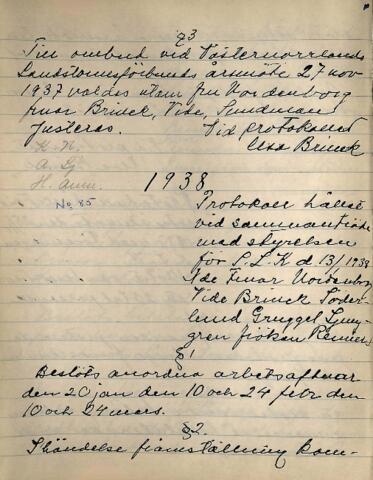 §3
Till ombud vid Västernorrlands
Landstormsförbunds årsmöte 27 nov
1937 valdes utom fru Nordenborg
fruar Brinck, Vide, Sundmark
Justeras. Vid protokollet
K. N. Elsa Brinck
A. Lj
H. Amn.
1938
No. 85
Protokoll hållet
vid sammanträde
med styrelsen
för S. L. K d. 13/1 1938
Ade Fruar Nordenborg
Vide Brinck Söder-
lund Gruggel Ljung-
gren fröken Renner
§1
Beslöts anordna arbetsaftnar
den 20 jan den 10 och 24 febr den
10 och 24 mars.
§2.
I händelse framställning kom-